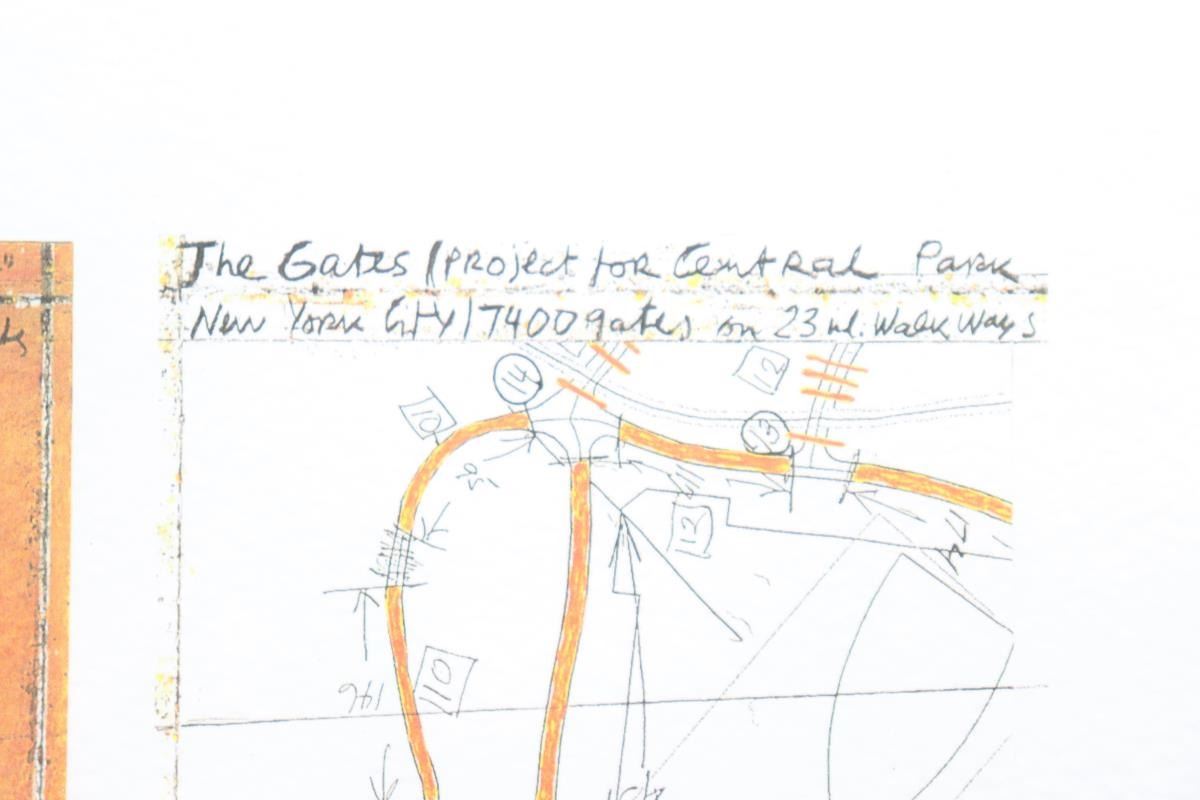 The Gates (Project for Central Park
New York City) 7400 gates on 23 ml. Walk Ways
14
12
10
13
13
146
110